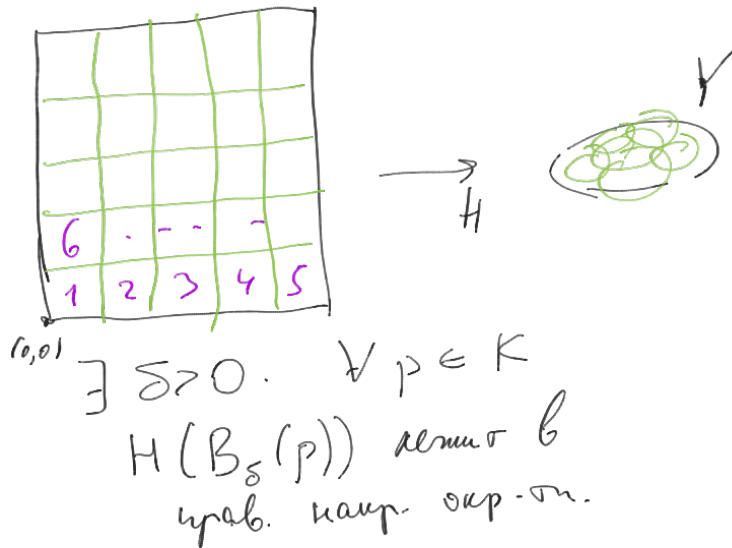 Y
6 . - - -
1 2 3 4 5
H
(0,0)
∃ δ>0. ∀ p ∈ K
H(B_δ(p)) лежит в
прав. накр. окр-ти.